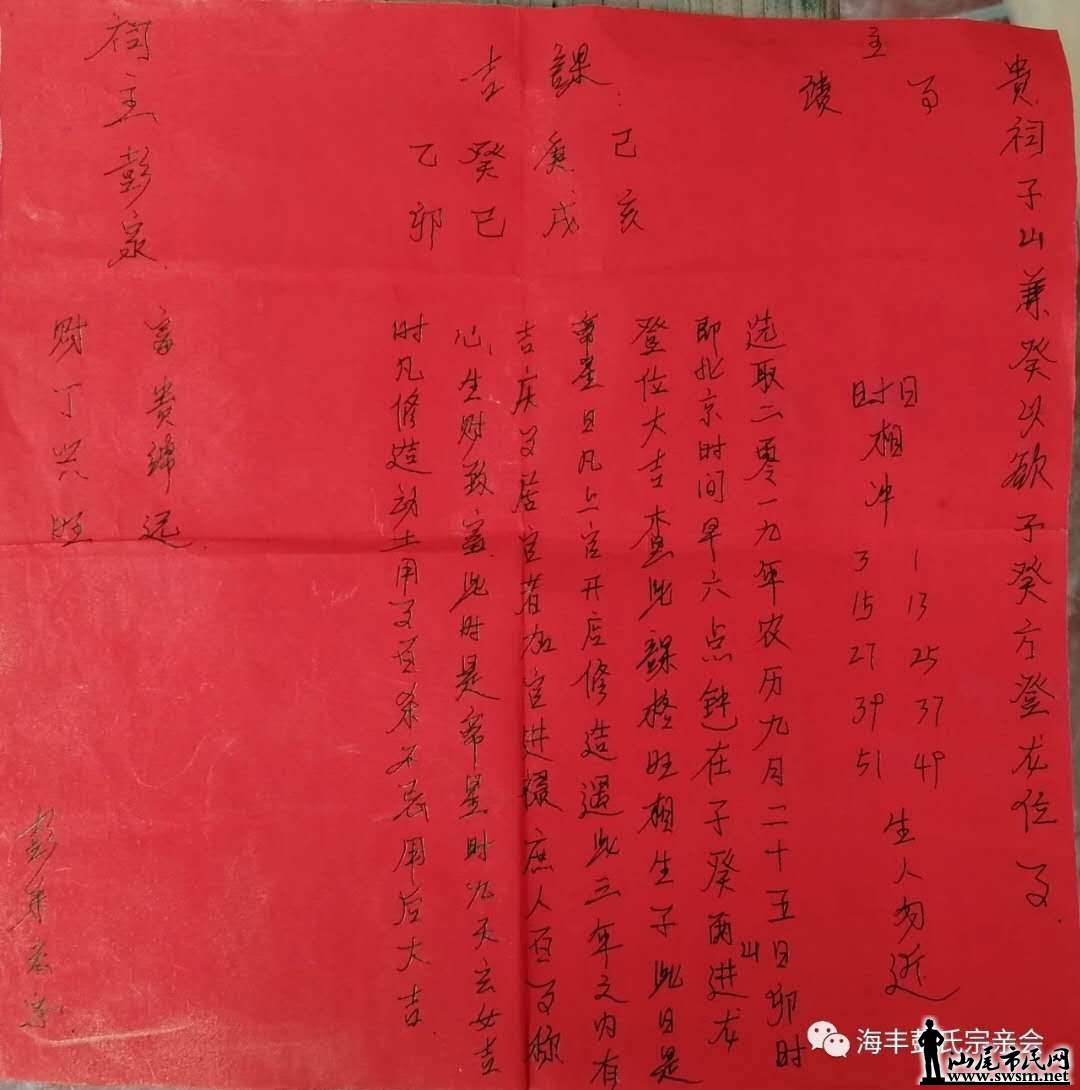 贵祠子山兼癸以欲子癸方登龙位了
主
日时相冲
1 13 25 37 49
3 15 27 39 51
生人勿近
吉課
己亥
庚戌
癸巳
乙卯
选取二零一九年农历九月二十五日卯时
即北京时间早六点钟在子癸两山进龙
登位大吉查此課格旺相生子此日是
帝星日凡上官开店修造遇此三年之内有
吉庆了居官者加官进禄庶人百了
心生财致富此时是帝星时九天玄女吉
时凡修造动土用了百杀不忌用后大吉
祠主彭泉
富贵绵远
财丁兴旺
海丰彭氏宗亲会
汕尾市民网
www.swsm.net